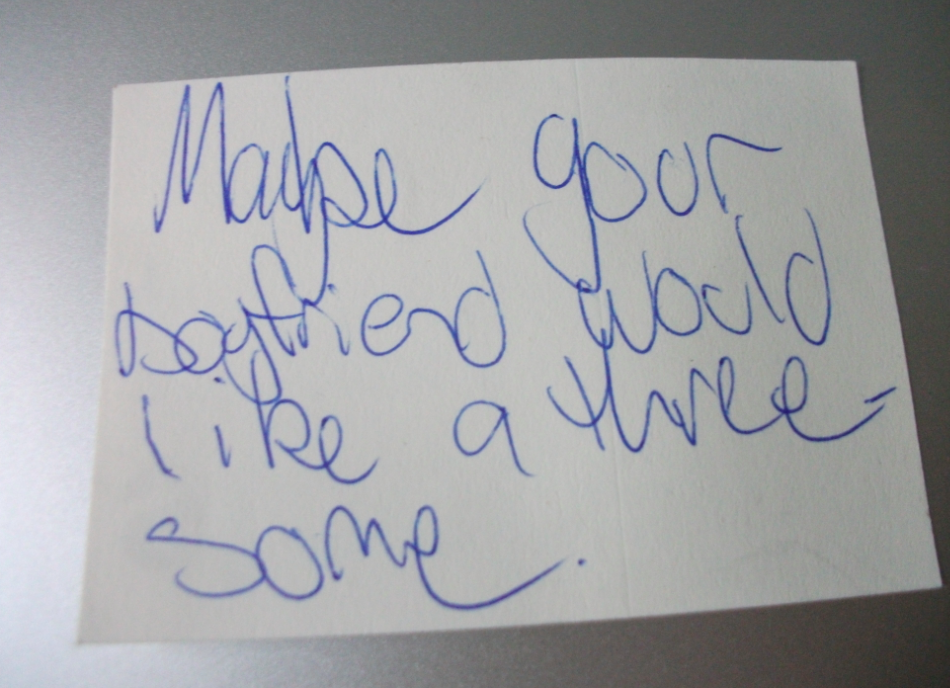 Maybe your
boyfriend would
like a three-
some.